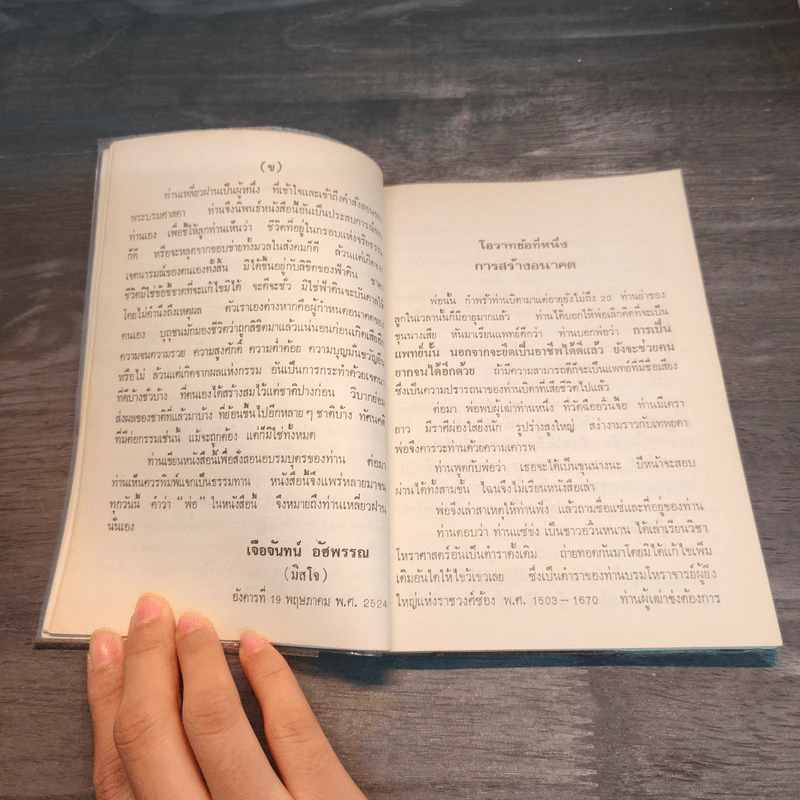 (ข)
ท่านเหลี่ยวฝานเป็นผู้หนึ่ง ที่เข้าใจและเข้าถึงคำสั่งสอนของ
พระบรมศาสดา ท่านจึงนิพนธ์หนังสือนี้อันเป็นประสบการณ์ของ
ท่านเอง เพื่อชี้ให้ลูกท่านเห็นว่า ชีวิตที่อยู่ในกรอบแห่งจริยธรรม
ก็ดี หรือจะหลุดจากขอบข่ายทั้งมวลในสังคมก็ดี ล้วนแต่เกิดจาก
เจตนารมณ์ของตนเองทั้งสิ้น มิได้ขึ้นอยู่กับลิขิตของฟ้าดิน ชาตา
ชีวิตมิใช่ข้อชี้ขาดที่จะแก้ไขมิได้ จะดีจะชั่ว มิใช่ฟ้าดินจะบันดาลให้
โดยไม่คำนึงถึงเหตุผล ตัวเราเองต่างหากคือผู้กำหนดอนาคตของ
ตนเอง บุถุชนมักมองชีวิตว่าถูกลิขิตมาแล้วแน่นอนก่อนเกิดเสียอีก
ความจนความรวย ความสูงศักดิ์ ความต่ำต้อย ความบุญมั่นขวัญยืน
หรือไม่ ล้วนแต่เกิดจากผลแห่งกรรม อันเป็นการกระทำด้วยเจตนา
ที่ดีบ้างชั่วบ้าง ที่ตนเองได้สร้างสมไว้แต่ชาติปางก่อน วิบากย่อม
ส่งผลของชาติที่แล้วมาบ้าง ที่ย้อนขึ้นไปอีกหลายๆ ชาติบ้าง ทัศนคติ
ที่มีต่อกรรมเช่นนี้ แม้จะถูกต้อง แต่ก็มิใช่ทั้งหมด
ท่านเขียนหนังสือนี้เพื่อสั่งสอนอบรมบุตรของท่าน ต่อมา
ท่านเห็นควรพิมพ์แจกเป็นธรรมทาน หนังสือนี้จึงแพร่หลายมาจน
ทุกวันนี้ คำว่า "พ่อ" ในหนังสือนี้ จึงหมายถึงท่านเหลี่ยวฝาน
นั่นเอง
เจือจันทน์ อัชพรรณ
(มิสโจ)
อังคารที่ 19 พฤษภาคม พ.ศ. 2524
โอวาทข้อที่หนึ่ง
การสร้างอนาคต
พ่อนั้น กำพร้าท่านบิดามาแต่อายุยังไม่ถึง 20 ท่านย่าของ
ลูกในเวลานั้นก็มีอายุมากแล้ว ท่านได้บอกให้พ่อเลิกคิดที่จะเป็น
ขุนนางเสีย หันมาเรียนแพทย์ดีกว่า ท่านบอกพ่อว่า การเป็น
แพทย์นั้น นอกจากจะยึดเป็นอาชีพได้ดีแล้ว ยังจะช่วยคน
ยากจนได้อีกด้วย ถ้ามีความสามารถดีก็จะเป็นแพทย์ที่มีชื่อเสียง
ซึ่งเป็นความปรารถนาของท่านบิดาที่เสียชีวิตไปแล้ว
ต่อมา พ่อพบผู้เฒ่าท่านหนึ่ง ที่วัดฉืออวิ๋นจื้อ ท่านมีเครา
ยาว มีราศีผ่องใสยิ่งนัก รูปร่างสูงใหญ่ สง่างามราวกับเทพยดา
พ่อจึงคารวะท่านด้วยความเคารพ
ท่านพูดกับพ่อว่า เธอจะได้เป็นขุนนางนะ ปีหน้าจะสอบ
ผ่านได้ทั้งสามขั้น ไฉนจึงไม่เรียนหนังสือเล่า
พ่อจึงเล่าสาเหตุให้ท่านฟัง แล้วถามชื่อแซ่และที่อยู่ของท่าน
ท่านตอบว่า ท่านแซ่ข่ง เป็นชาวอวิ๋นหนาน ได้เล่าเรียนวิชา
โหราศาสตร์อันเป็นตำราดั้งเดิม ถ่ายทอดกันมาโดยมิได้แก้ไขเพิ่ม
เติมอันใดให้ไขว้เขวเลย ซึ่งเป็นตำราของท่านบรมโหราจารย์ผู้ยิ่ง
ใหญ่แห่งราชวงศ์ซ้อง พ.ศ. 1503 – 1670 ท่านผู้เฒ่าข่งต้องการ